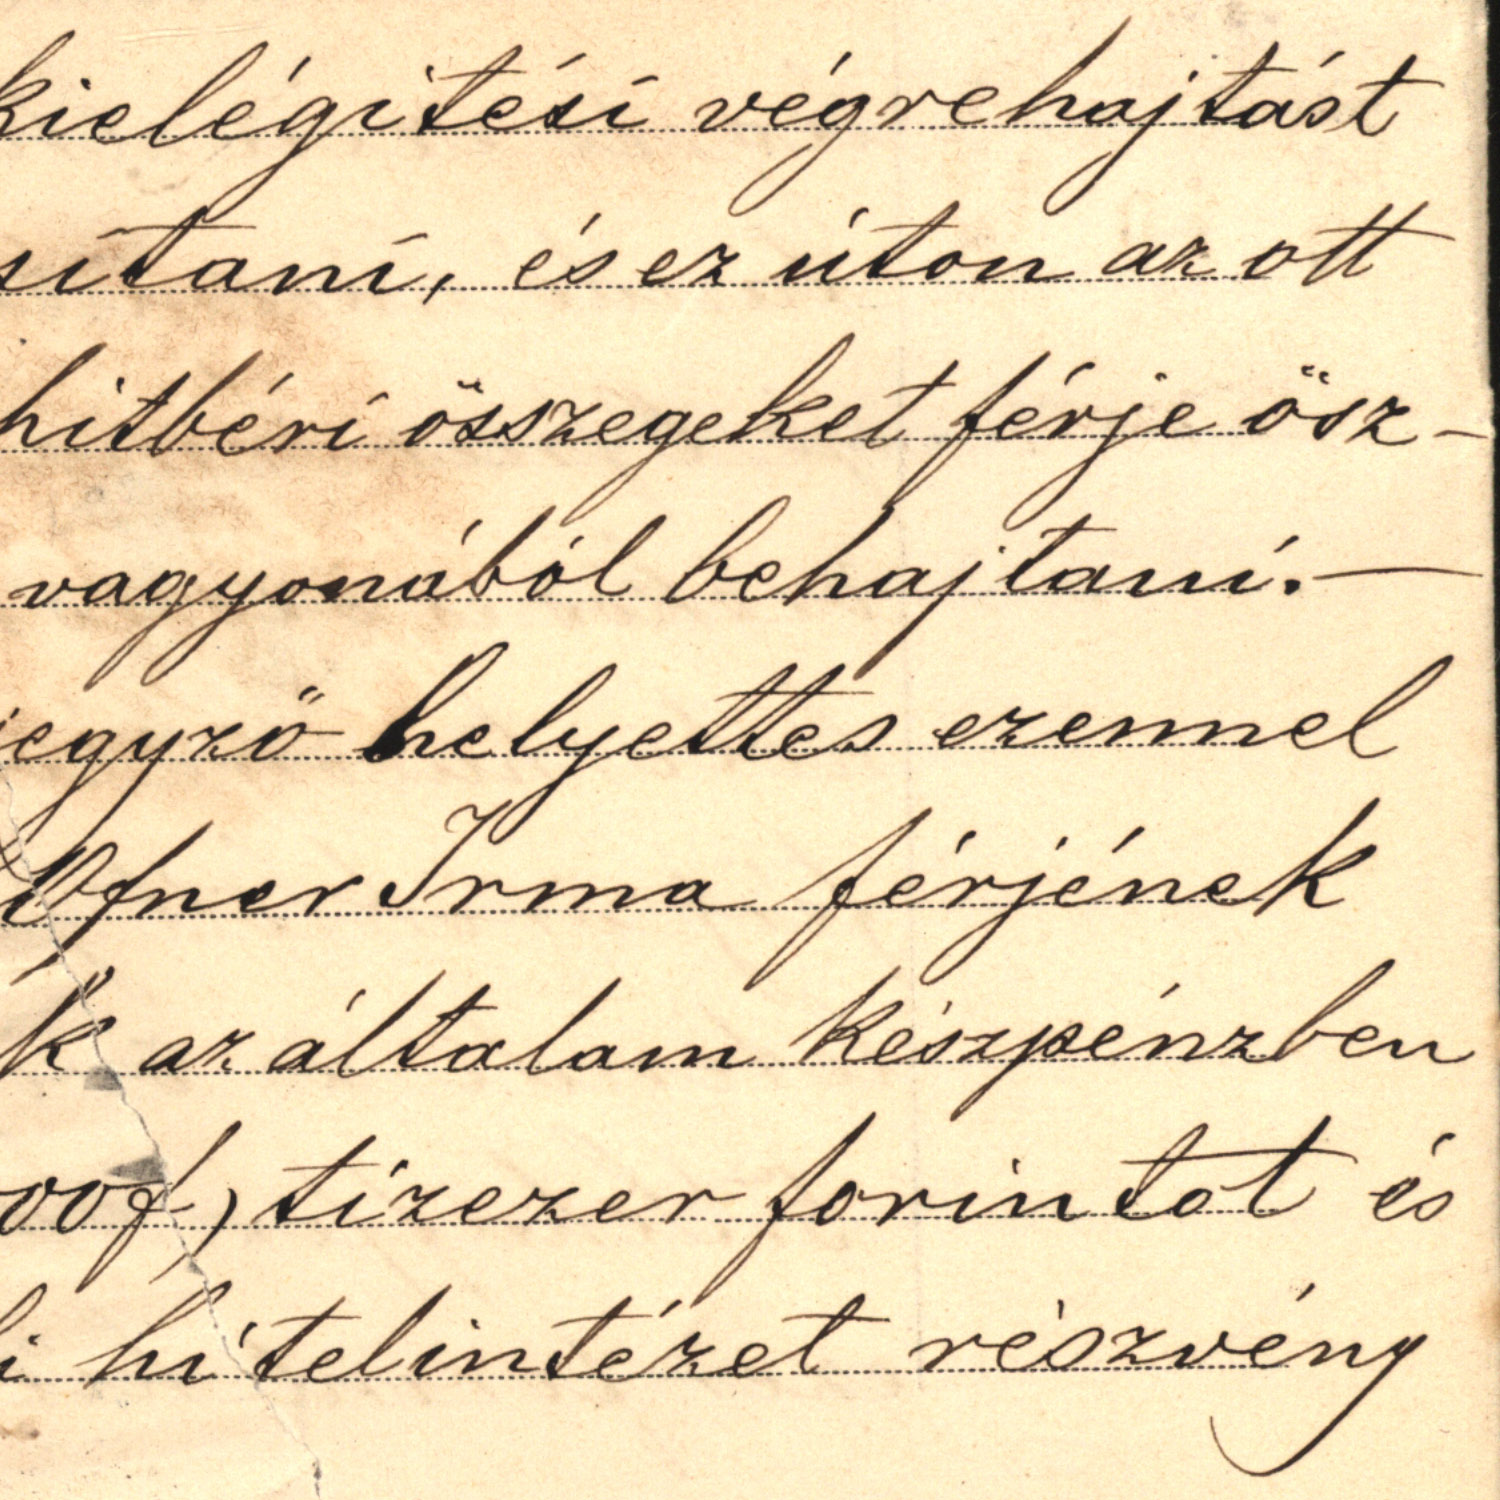 kielégitési végrehajtást
sítani, és ez úton az ott
hitbéri összegeket férje ösz-
vagyonából behajtani.—
jegyző helyettes ezennel
Ofner Irma férjének
k az általam készpénzben
00f) tízezer forintot és
i hitelintézet részvény